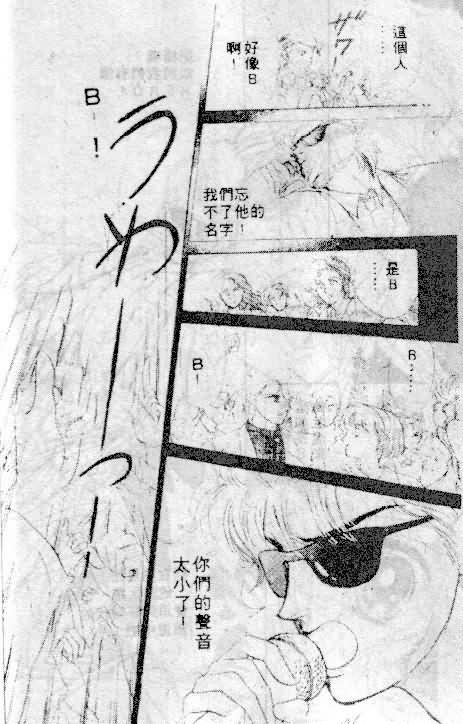 這個人
……
ザワ…
好像B
啊！
我們忘
不了他的
名字！
是B
……
B……
B－
你們的聲音
太小了！
B－！
うわーっー